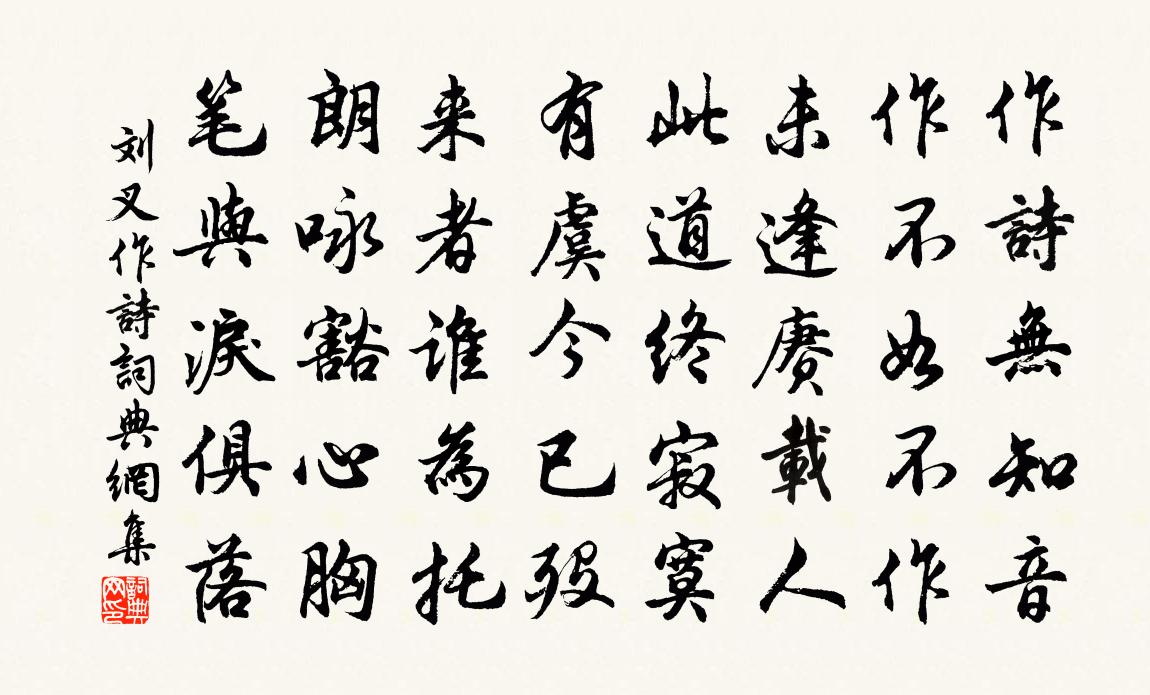 作詩無知音
作不如不作
未逢赓載人
此道终寂寞
有虞今已殁
来者谁為托
朗咏豁心胸
笔與淚俱落
刘叉作詩詞典網集
詞典網印